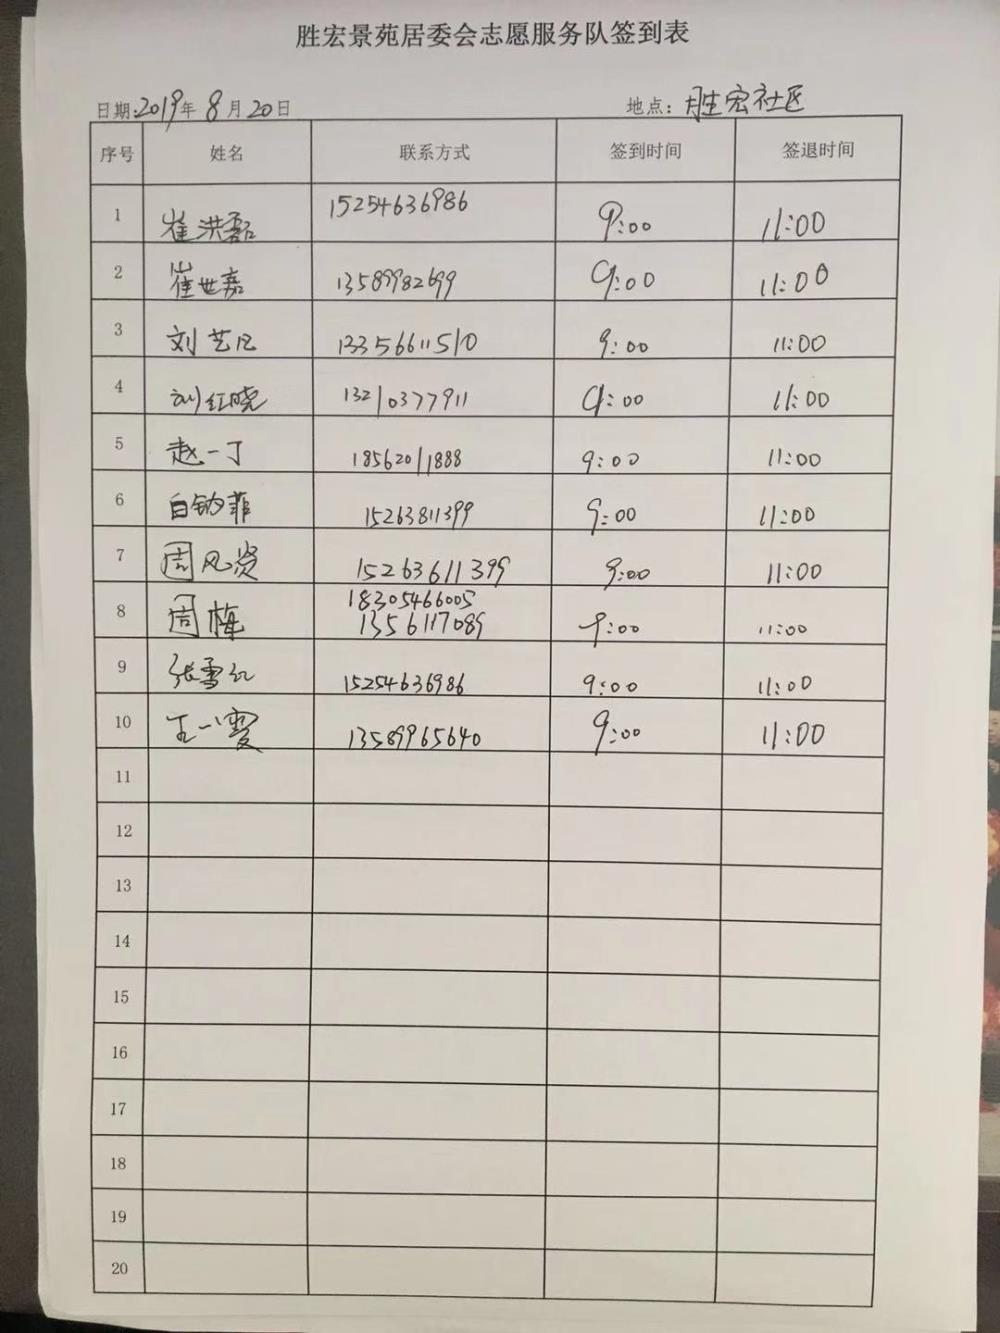 胜宏景苑居委会志愿服务队签到表
日期:2019年8月20日 地点:胜宏社区
序号 姓名 联系方式 签到时间 签退时间
1 崔洪磊 15254636986 9:00 11:00
2 崔世嘉 13589982699 9:00 11:00
3 刘艺凡 13356611510 9:00 11:00
4 刘红晓 13210377911 9:00 11:00
5 赵一丁 18562011888 9:00 11:00
6 白钠菲 15263811399 9:00 11:00
7 周风贤 15263611399 9:00 11:00
18305466005
8 周梅 13561117089 9:00 11:00
9 张雪红 15254636986 9:00 11:00
10 王一雯 13589965640 9:00 11:00
11
12
13
14
15
16
17
18
19
20